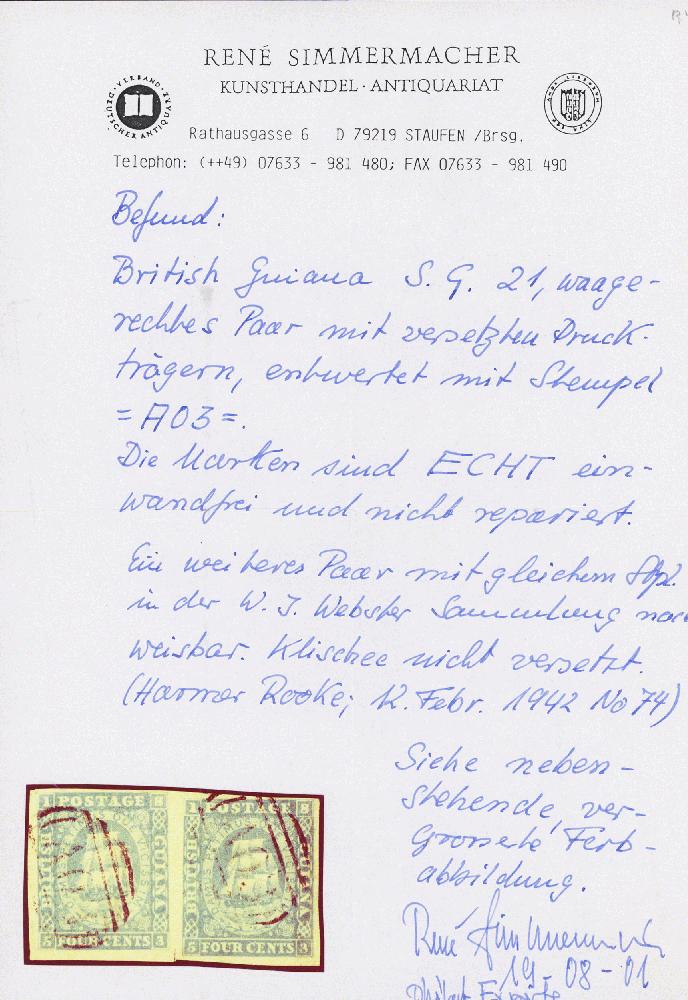 RENÉ SIMMERMACHER
KUNSTHANDEL · ANTIQUARIAT
· VERBAND · DEUTSCHER ANTIQUARE
Rathausgasse 6 D 79219 STAUFEN /Brsg.
Telephon: (++49) 07633 - 981 480; FAX 07633 - 981 490
Befund:
British Guiana S. G. 21, waage-
rechtes Paar mit versetzten Druck-
trägern, entwertet mit Stempel
=A03=.
Die Marken sind ECHT ein-
wandfrei und nicht repariert.
Ein weiteres Paar mit gleichem Stpl.
in der W. J. Webster Sammlung nach
weisbar. Klischee nicht versetzt.
(Harmer Rooke; 12. Febr. 1942 No 74)
Siehe neben-
stehende, ver-
grösserte Farb-
abbildung.
René Simmermacher
19-08-01
Philat. Experte
1 POSTAGE 8
BRITISH
GUIANA
5 FOUR CENTS 3
1 POSTAGE 8
BRITISH
GUIANA
5 FOUR CENTS 3